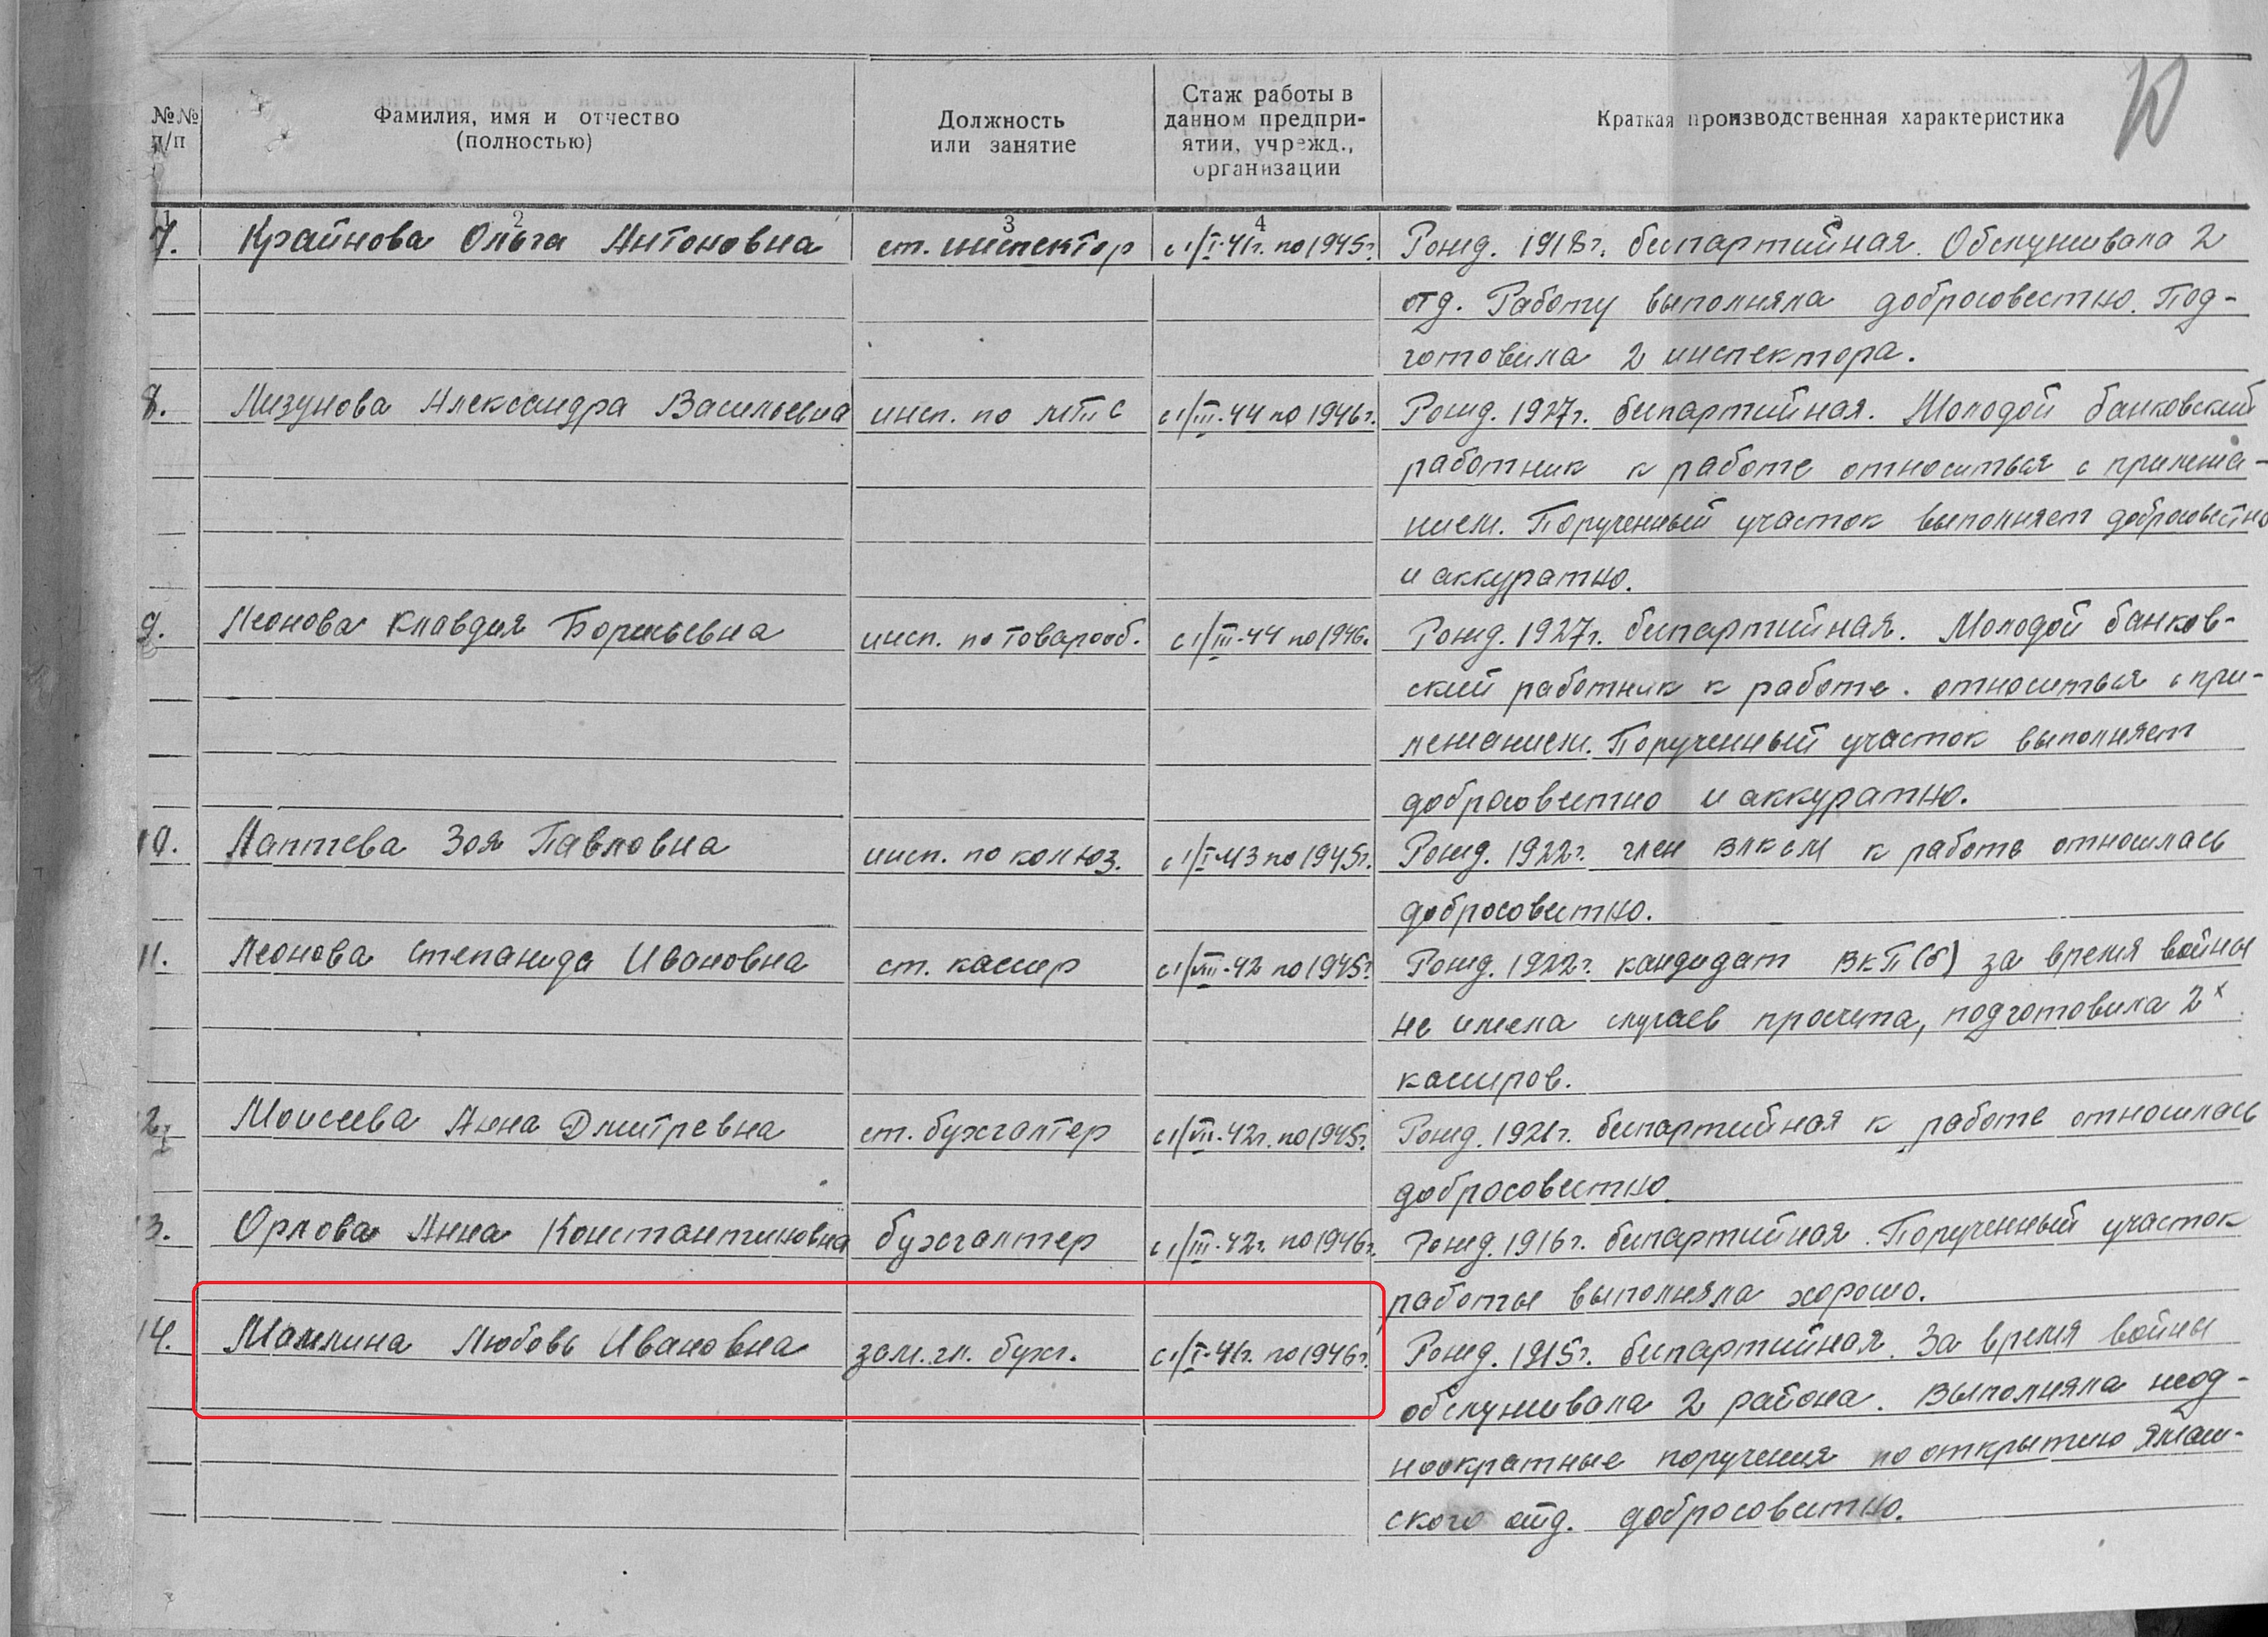 10
№№ п/п
Фамилия, имя и отчество (полностью)
Должность или занятие
Стаж работы в данном предприятии, учрежд., организации
Краткая производственная характеристика
1 2 3 4
7. Крайнова Ольга Антоновна ст. инспектор с 1/I-41г. по 1945г. Рожд. 1918г. беспартийная. Обслуживала 2
отд. Работу выполняла добросовестно. Под-
готовила 2 инспектора.
8. Лизунова Александра Васильевна инсп. по мтс с 1/III-44 по 1946г. Рожд. 1927г. беспартийная. Молодой банковский
работник к работе относиться с прилежа-
нием. Порученный участок выполняет добросовестно
и аккуратно.
9. Леонова Клавдия Борисьевна инсп. по товарооб. с 1/III-44 по 1946г. Рожд. 1927г. беспартийная. Молодой банков-
ский работник к работе. относиться с при-
лежанием. Порученный участок выполняет
добросовестно и аккуратно.
10. Лаптева Зоя Павловна инсп. по колхоз. с 1/I-43 по 1945г. Рожд. 1922г. член ВЛКСМ к работе относилась
добросовестно.
11. Леонова Степанида Ивановна ст. кассир с 1/VIII-42 по 1945г. Рожд. 1922г. кандидат ВКП(б) за время войны
не имела случаев просчета, подготовила 2х
касиров.
2. Моисеева Анна Дмитревна ст. бухгалтер с 1/VII-42г. по 1945г. Рожд. 1921г. беспартийная к работе относилась
добросовестно.
3. Орлова Анна Константиновна бухгалтер с 1/III-42г. по 1946г. Рожд. 1916г. беспартийная. Порученный участок
работы выполняла хорошо.
14. Мамлина Любовь Ивановна зам. гл. бухг. с 1/I-41г. по 1946г. Рожд. 1915г. беспартийная. За время войны
обслуживала 2 района. Выполняла неод-
нократные поручения по открытию Ямаш-
ского отд. добросовестно.